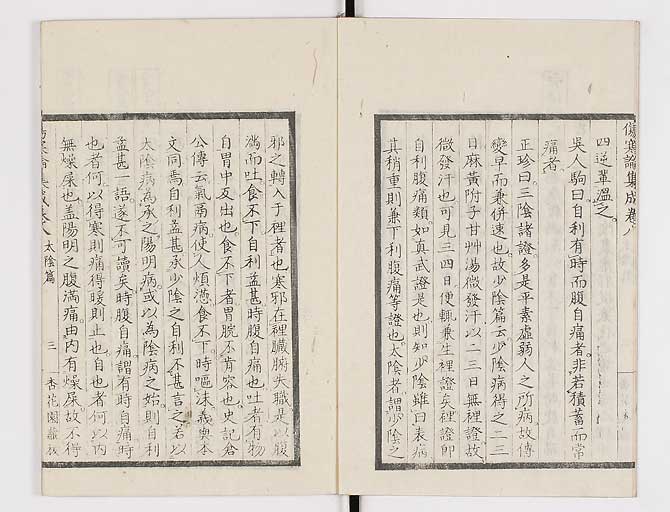 傷寒論集成卷八
四逆軰溫之
吳人駒曰自利有時而腹自痛者非若積蓄而常
痛者
正珍曰三陰諸證多是平素虛弱人之所病故傳
變早而兼併速也故少陰篇云少陰病得之二三
日麻黃附子甘艸湯微發汗以二三日無裡證故
微發汗也可見三四日便輙兼生裡證矣裡證卽
自利腹痛類如眞武證是也則知少陰雖曰表病
其稍重則兼下利腹痛等證也太陰者謂少陰之
邪之轉入于裡者也寒邪在裡臟腑失職是以腹
滿而吐食不下自利益甚時腹自痛也吐者有物
自胃中反出也食不下者胃脘不肯容也史記倉
公傳云氣鬲病使人煩懣食不下時嘔沫義與本
文同焉自利益甚承少陰之自利不甚言之若以
太陰病爲承之陽明病或以爲陰病之始則自利
益甚一語遂不可讀矣時腹自痛謂有時自痛時
也者何以得寒則痛得暖則止也自也者何以內
無燥屎也蓋陽明之腹滿痛由內有燥屎故不得
集成卷八 太陰篇 三 杏花園藏板